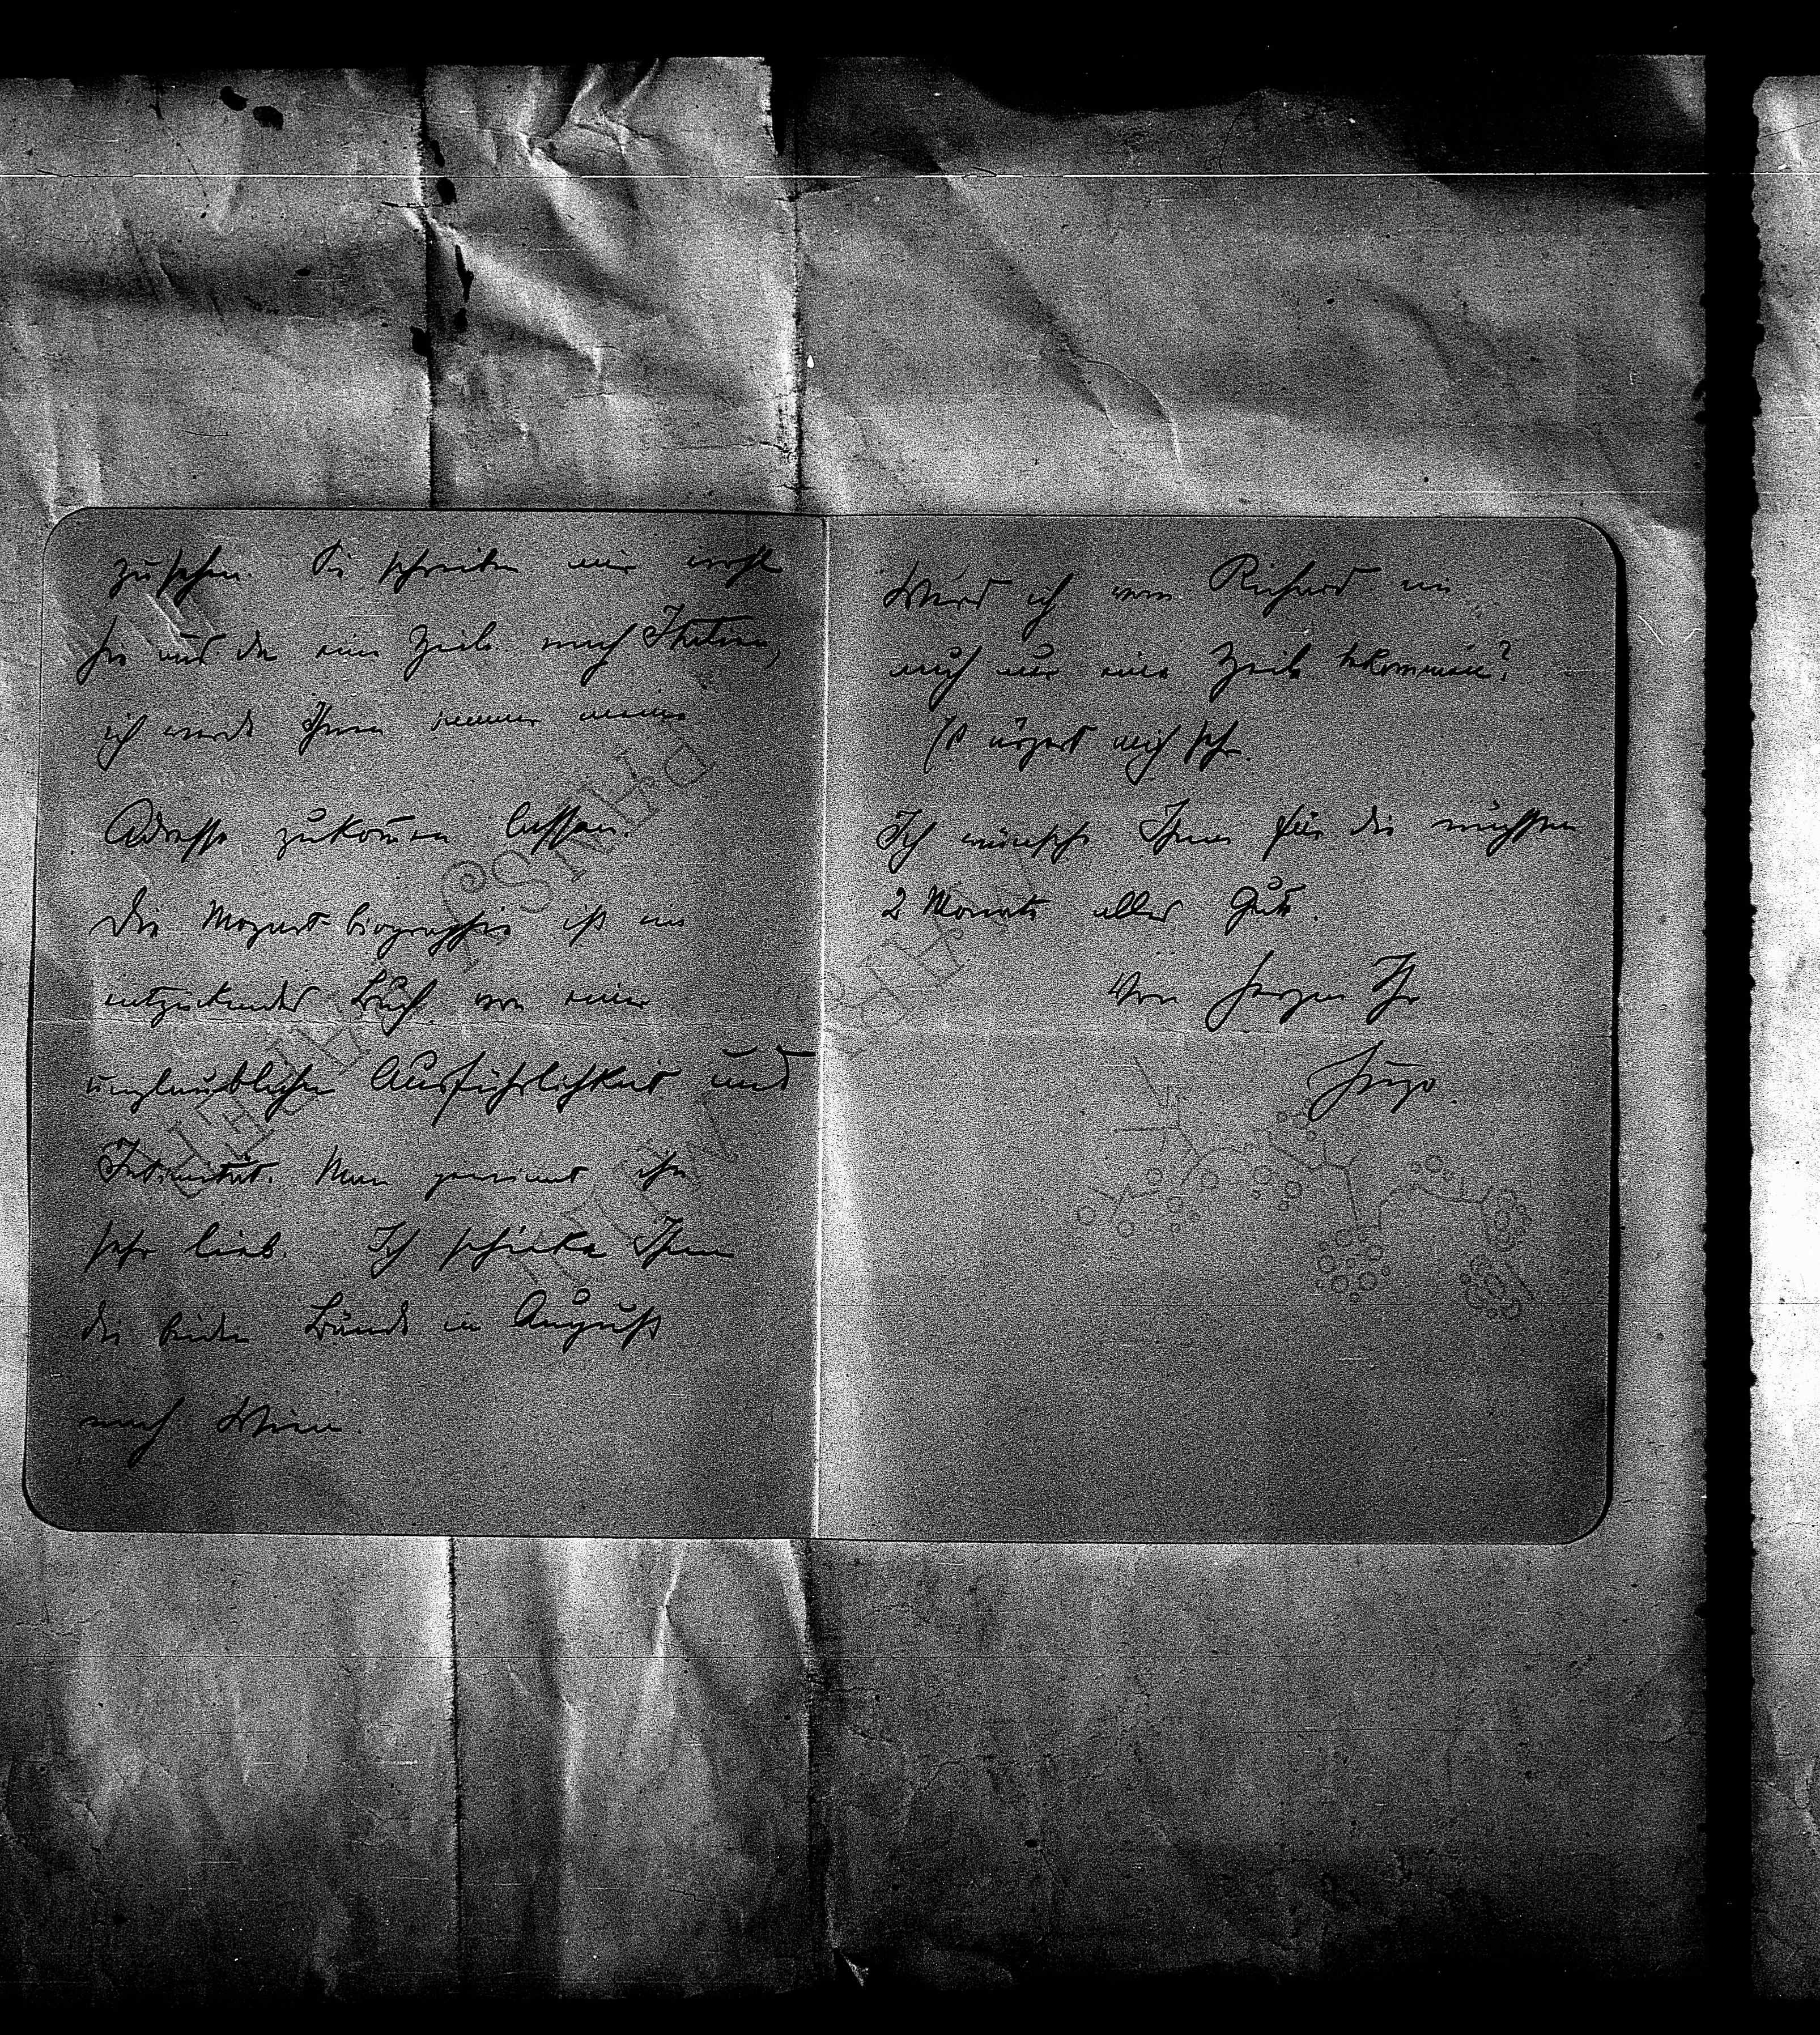 zusehen. Sie schreiben mir wohl
hie und da eine Zeile nach
ich werde Ihnen immer meine
Adresse zukom̅en lassen.
Die Mozart-biographie ist ein
entzückendes Buch von einer
unglaublichen Ausführlichkeit und
Intimität. Man gewinnt ihn
sehr lieb. Ich schicke Ihnen
die beiden Bände im August
nach Wien.
Werd ich von Richard nie
auch nur eine Zeile bekommen?
Es ärgert mich sehr.
Ich wünsche Ihnen für die nächsten
2 Monate alles Gute.
Von Herzen Ihr
Hugo.